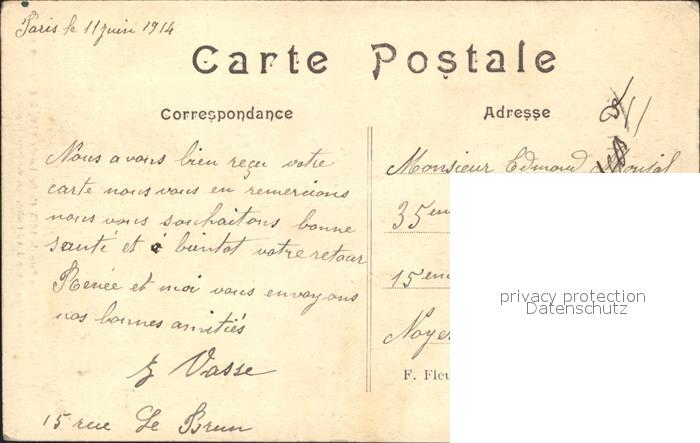 Paris le 11 juin 1914
Carte Postale
Correspondance
Adresse
Nous avons bien reçu votre
carte nous vous en remercions
nous vous souhaitons bonne
santé et à bientot votre retour
Renée et moi vous envoyons
nos bonnes amitiés
Vasse
15 rue Le Brun
Monsieur Edmond
35em
15em
Noye
F. Fleu
privacy protection
Datenschutz